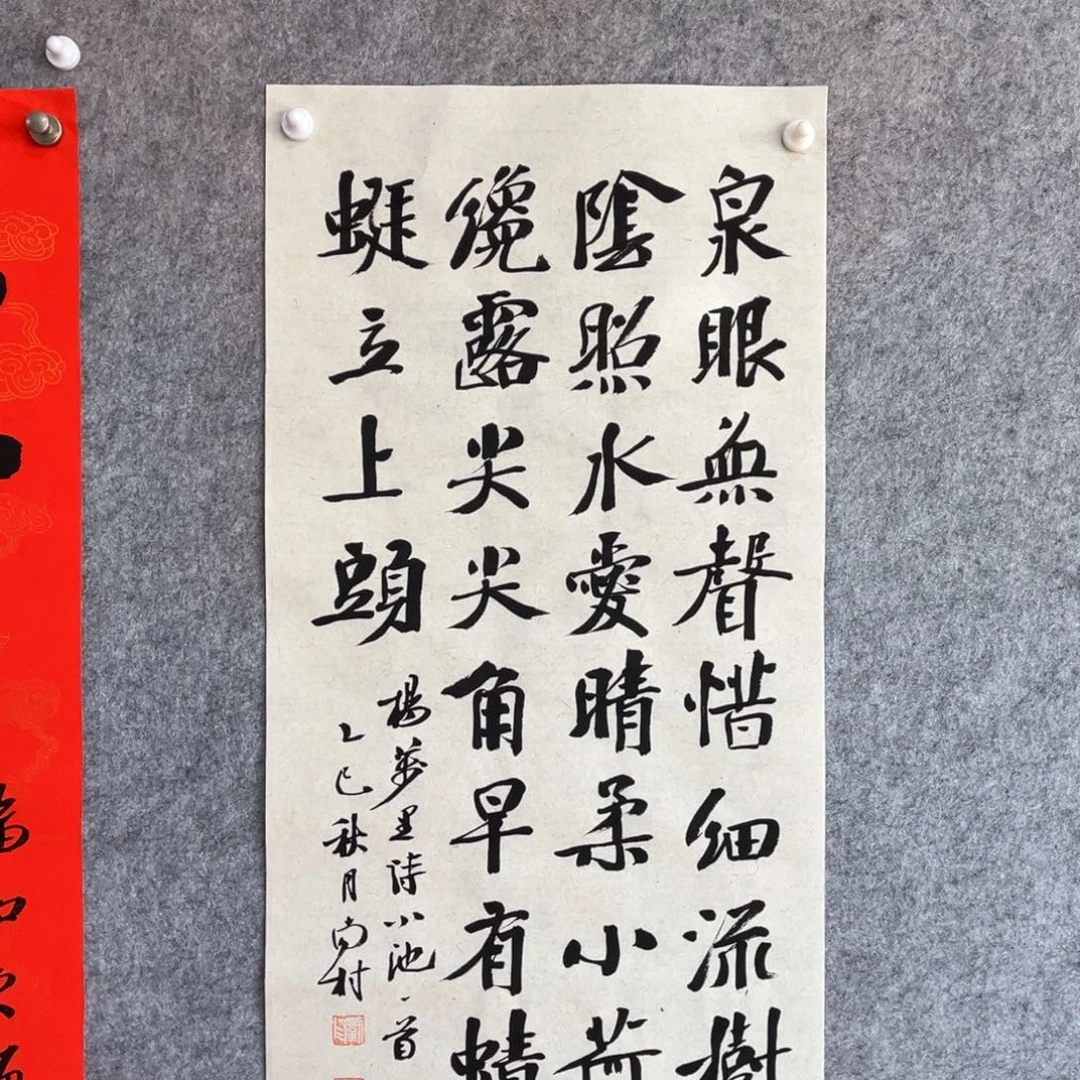 泉眼無聲惜細流樹
陰照水愛晴柔小荷
纔露尖尖角早有蜻
蜓立上頭
楊萬里詩小池一首
乙巳秋月尚村